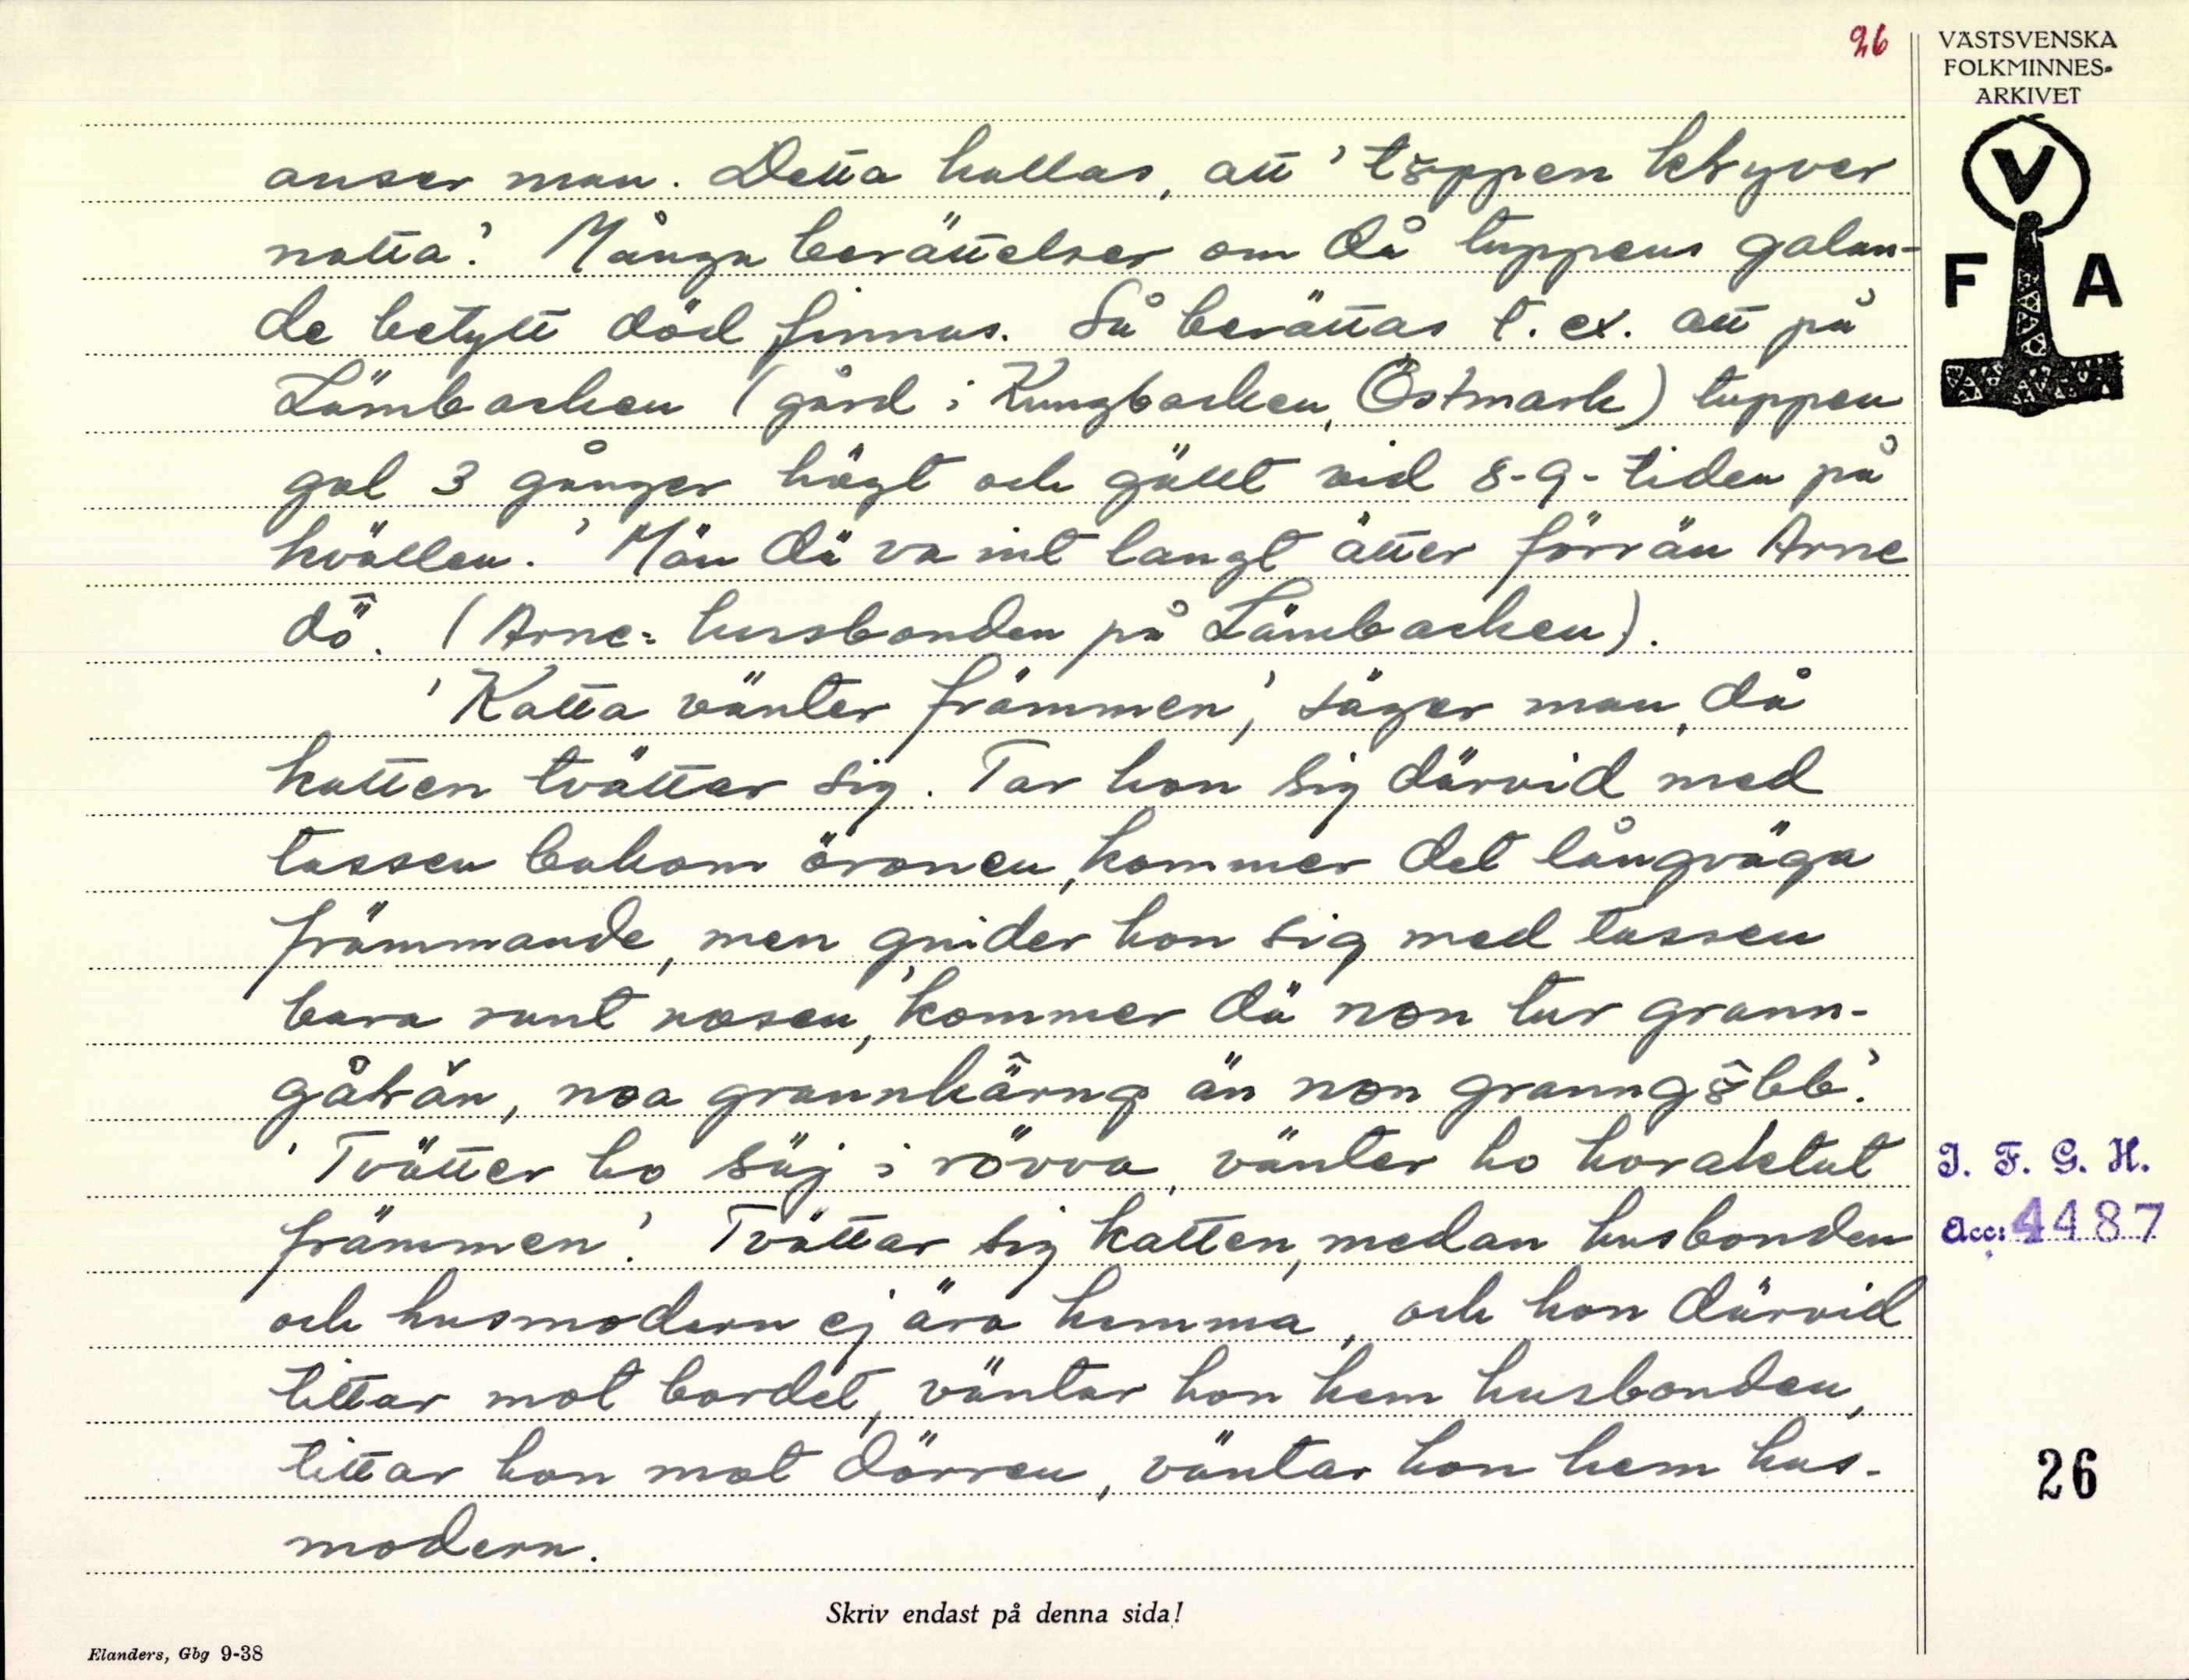 26
VÄSTSVENSKA
FOLKMINNES-
ARKIVET
V
F A
anser man. Detta kallas, att 'töppen klyver
natta'. Många berättelser om då tuppens galan-
de betytt död finnas. Så berättas t. ex. att på
Lämbacken (gård i Kungbacken, Östmark) tuppen
gol 3 gånger högt och gällt vid 8-9-tiden på
kvällen. 'Män dä va int langt ätter förrän Arne
dö. (Arne = husbonden på Lämbacken).
'Katta vänter främmen', säger man, då
katten tvättar sig. Tar hon sig därvid med
tassen bakom öronen, kommer det långväga
främmande, men gnider hon sig med tassen
bara runt nosen, 'kommer dä non tur grann-
gålän, noa grannkärng än non granngöbb'.
'Tvätter ho säj i rövva, vänter ho horaktut
främmen'. Tvättar sig katten, medan husbonden
och husmodern ej ära hemma, och hon därvid
tittar mot bordet, väntar hon hem husbonden,
tittar hon mot dörren, väntar hon hem hus-
modern.
I. F. G. H.
Acc: 4487
26
Skriv endast på denna sida!
Elanders, Gbg 9-38